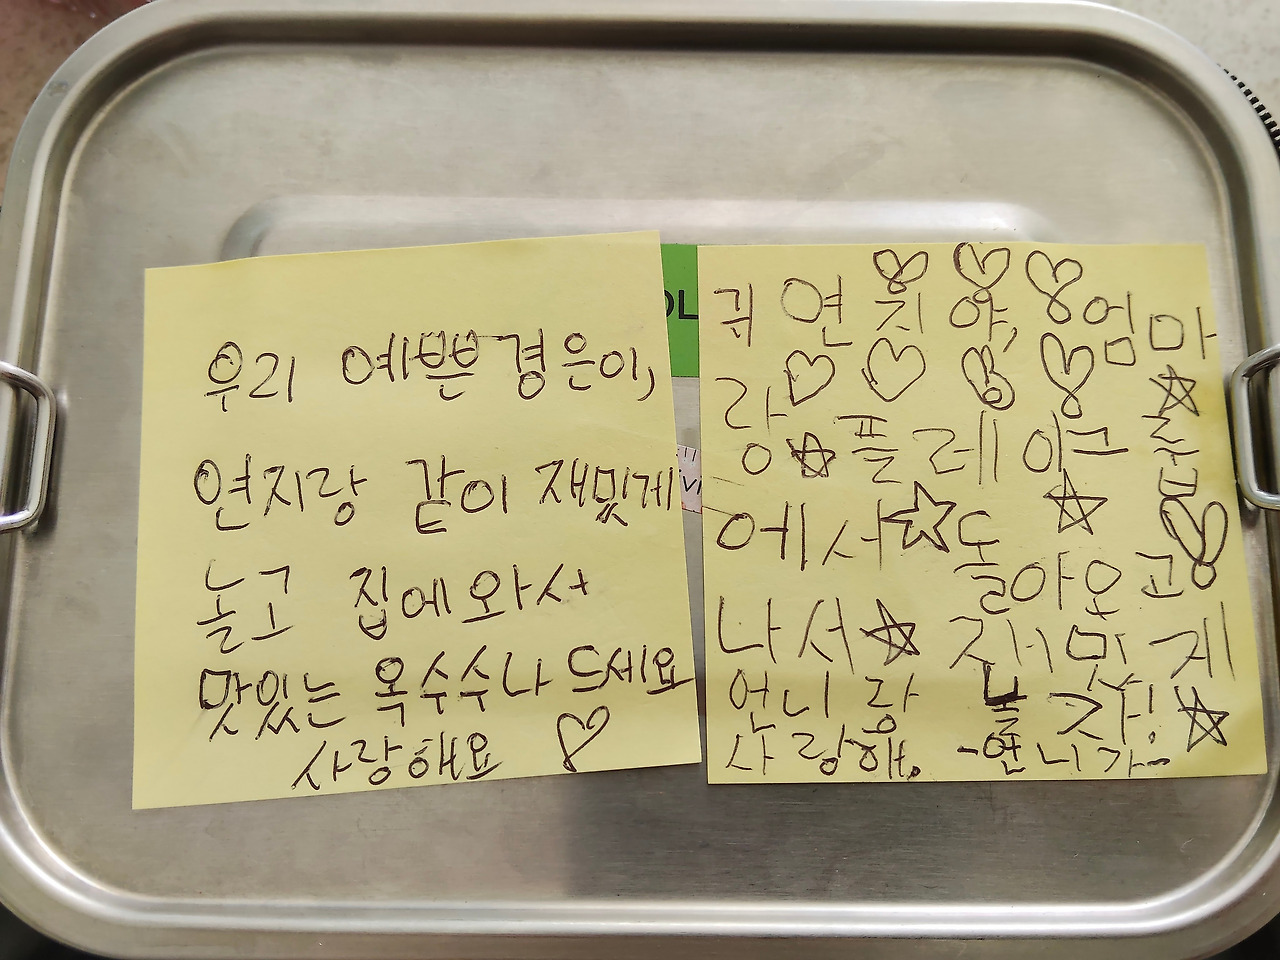 우리 예쁜 경은이,
연지랑 같이 재밌게
놀고 집에와서
맛있는 옥수수나 드세요
사랑해요
OL
귀 연지야, 엄마
랑 플레이그
에서 돌아오고
나서 재밌게
언니랑 놀자!
사랑해. -언니가-